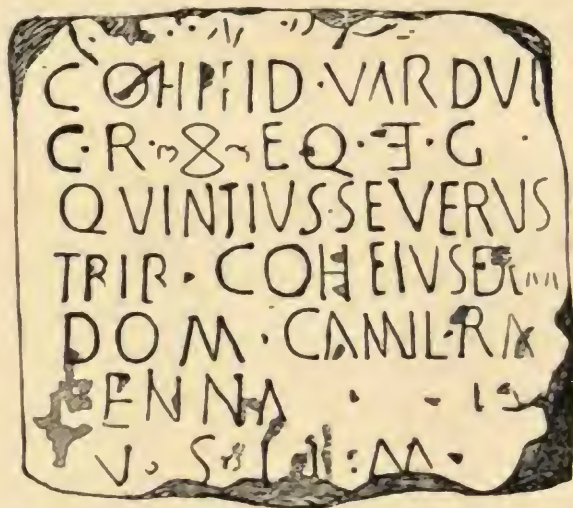 COH I FID · VARDVL
C · R · ∞ · EQ · Ǝ · G ·
QVINTIVS·SEVERVS
TRIB · COH EIVSD
DOM · CAMIL·RA
ENNA
V · S · L · M ·